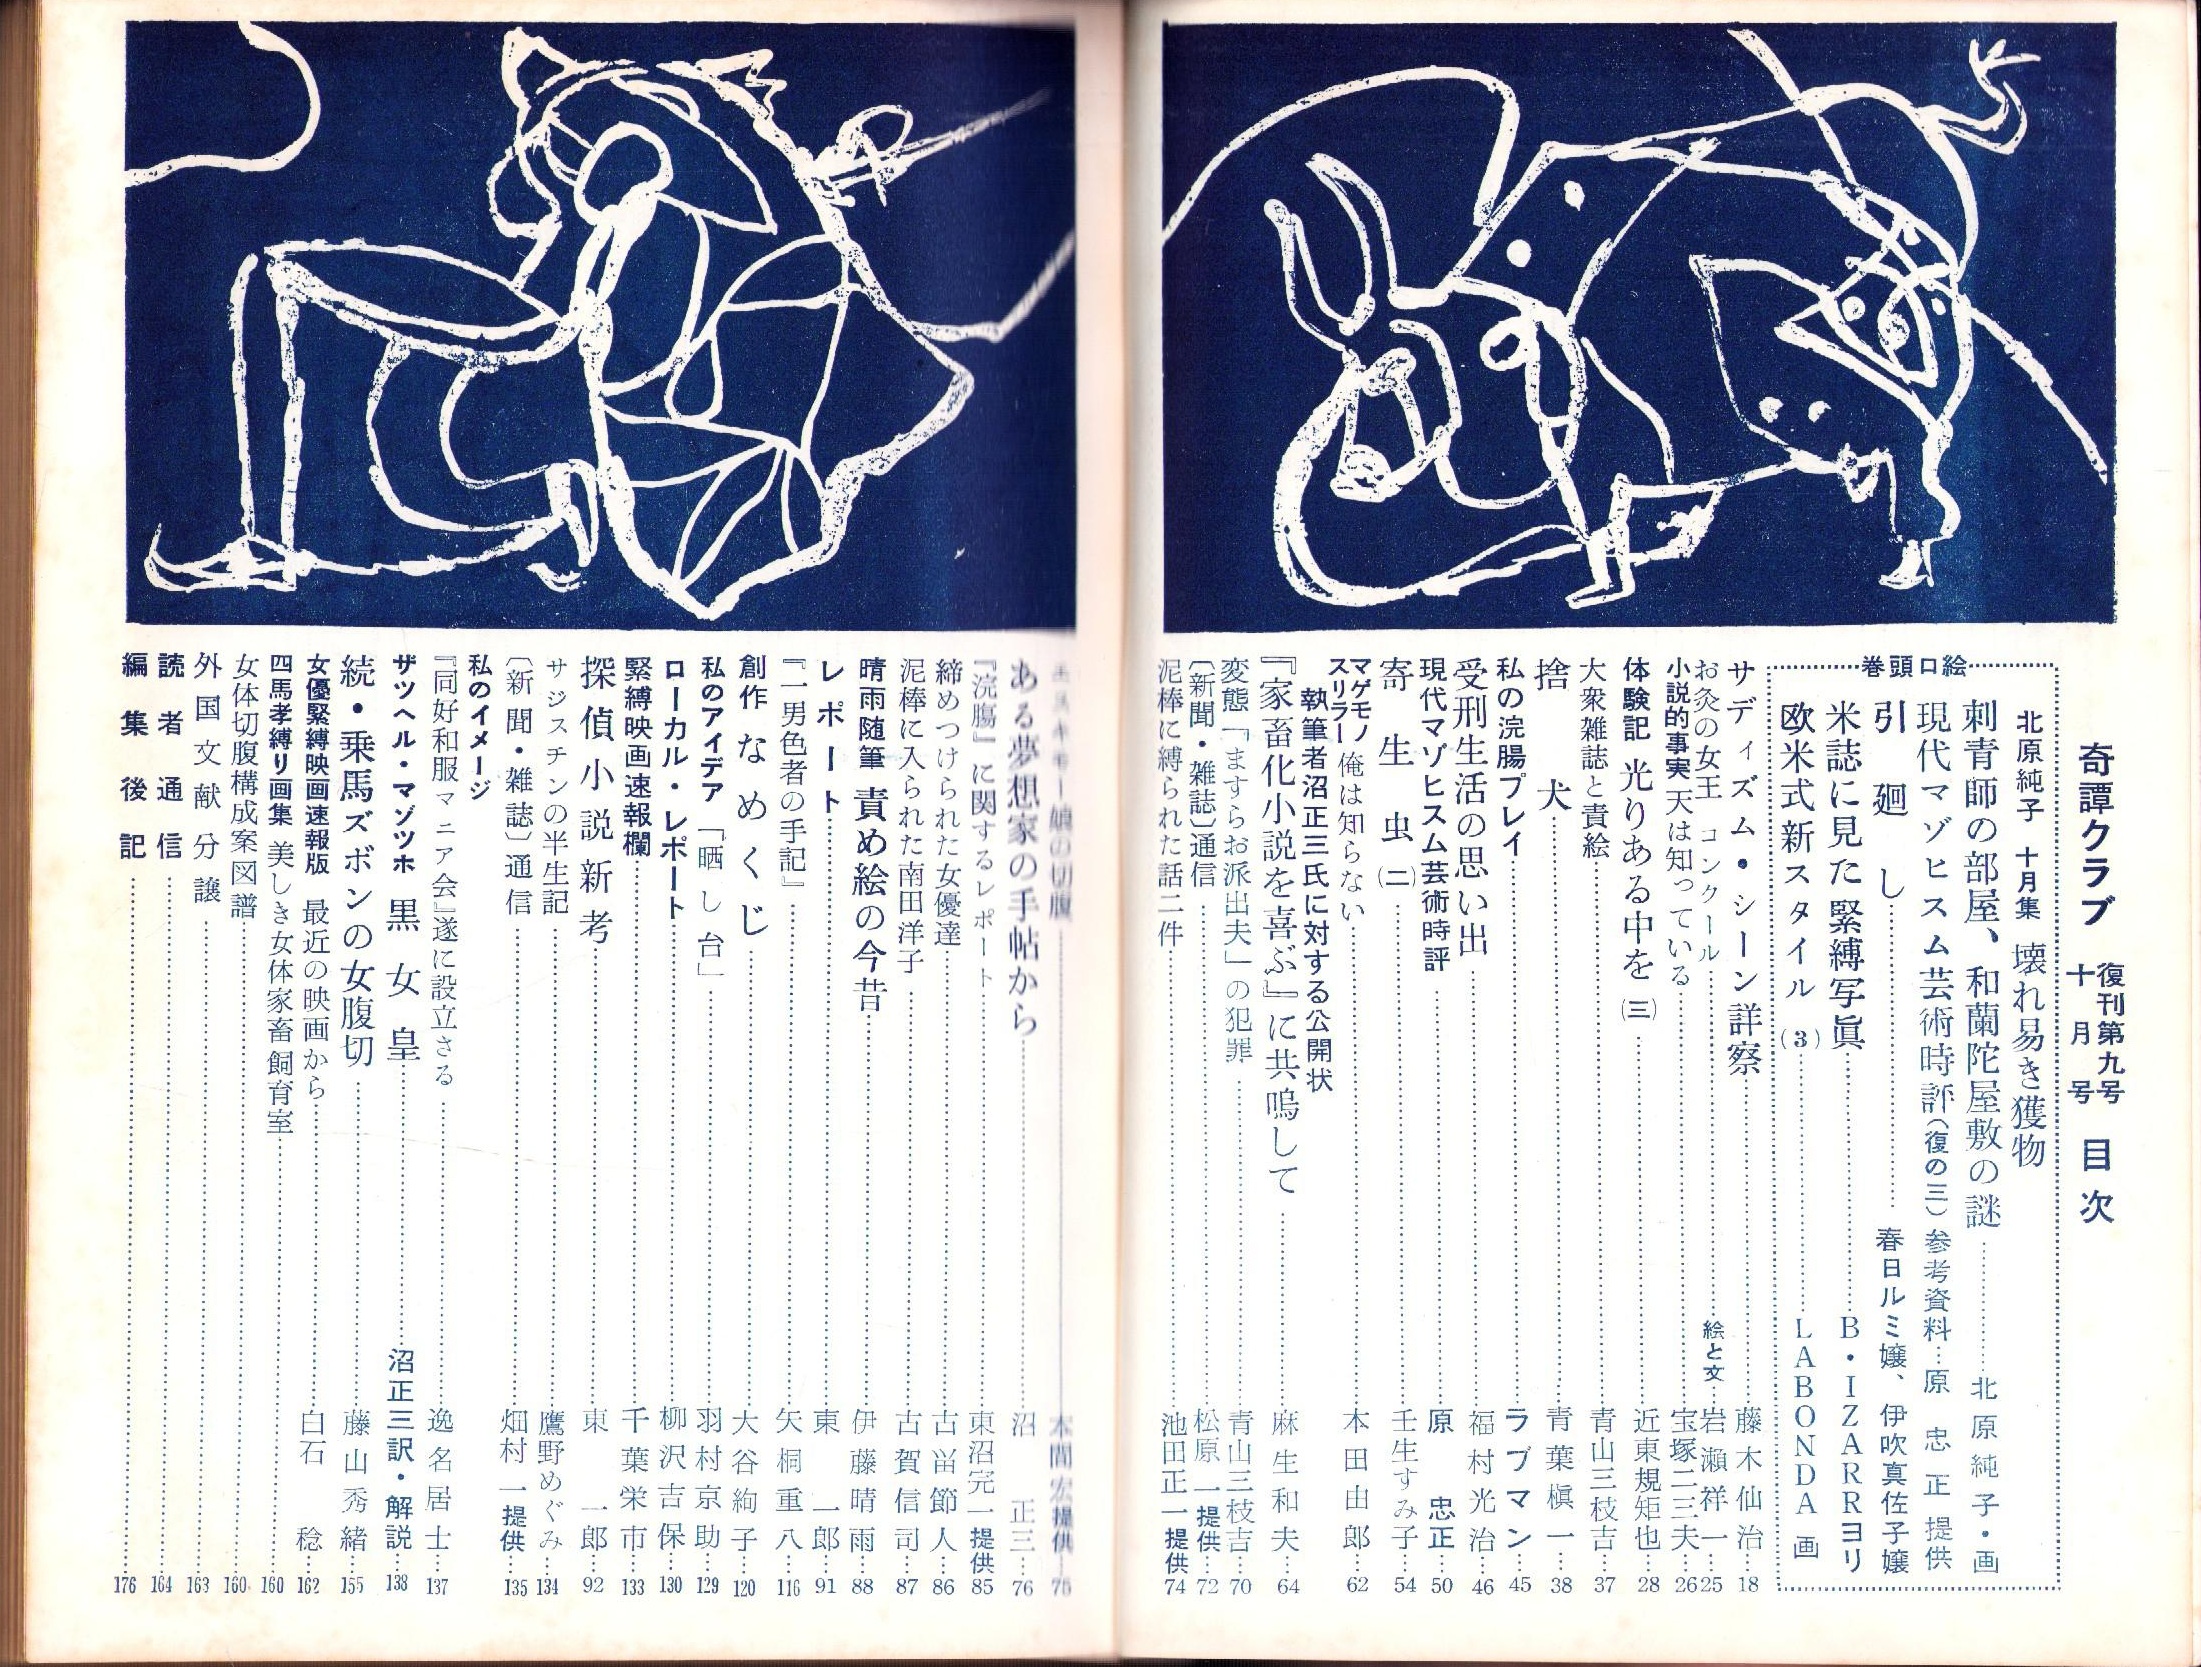 奇譚クラブ 復刊第九号 十月号 目次
巻頭口絵
北原純子 十月集 壊れ易き獲物
刺青師の部屋、和蘭陀屋敷の謎 北原純子・画
現代マゾヒスム芸術時評(復の三) 参考資料 原忠正提供
引廻し 春日ルミ嬢、伊吹真佐子嬢
米誌に見た緊縛写眞 B・IZARRヨリ
欧米式新スタイル(3) LABONDA画
サディズム・シーン詳察 藤木仙治 18
お灸の女王コンクール 絵と文 岩瀬祥一 25
小説的事実 天は知っている 宝塚二三夫 26
体験記 光りある中を(三) 近東規矩也 28
大衆雑誌と責絵 青山三枝吉 37
捨犬 青葉槇一 38
私の浣腸プレイ ラブマン 45
受刑生活の思い出 福村光治 46
現代マゾヒスム芸術時評 原忠正 50
寄生虫(二) 壬生すみ子 54
マゲモノスリラー 俺は知らない 本田由郎 62
執筆者沼正三氏に対する公開状
『家畜化小説を喜ぶ』に共鳴して 麻生和夫 64
変態「ますらお派出夫」の犯罪 青山三枝吉 70
〔新聞・雑誌〕通信 松原一提供 72
泥棒に縛られた話二件 池田正一提供 74
娘の切腹 本間宏提供 75
ある夢想家の手帖から 沼正三 76
『浣腸』に関するレポート 東沼完一提供 85
締めつけられた女優達 古留節人 86
泥棒に入られた南田洋子 古賀信司 87
晴雨随筆 責め絵の今昔 伊藤晴雨 88
レポート 東一郎 91
『一男色者の手記』 矢桐重八 116
創作 なめくじ 大谷絢子 120
私のアイデア 「晒し台」 羽村京助 129
ローカル・レポート 柳沢吉保 130
緊縛映画速報欄 千葉栄市 133
探偵小説新考 東一郎 92
サジスチンの半生記 鷹野めぐみ 134
〔新聞・雑誌〕通信 畑村一提供 135
私のイメージ
『同好和服マニア会』遂に設立さる 逸名居士 137
ザツヘル・マゾツホ 黒女皇 沼正三訳・解説 138
続・乗馬ズボンの女腹切 藤山秀緒 155
女優緊縛映画速報版 最近の映画から 白石稔 162
四馬孝縛り画集 美しき女体家畜飼育室 160
女体切腹構成案図譜 160
外国文献分譲 163
読者通信 164
編集後記 176